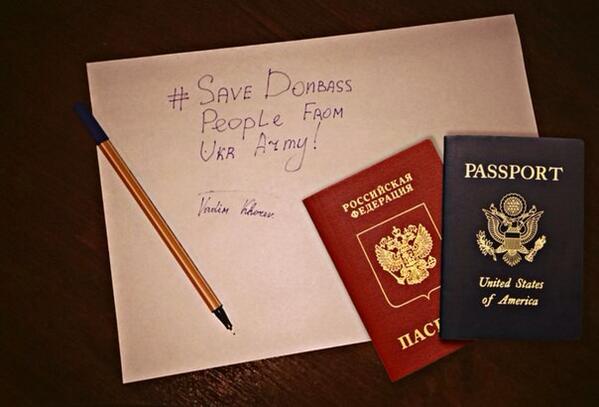 # SAVE DONBASS
PEOPLE FROM
UKR ARMY!
Vadim
РОССИЙСКАЯ
ФЕДЕРАЦИЯ
PASSPORT
United States
of America